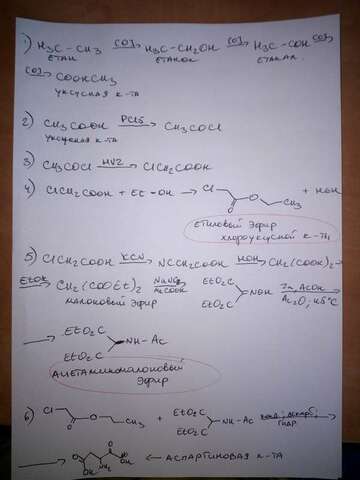 1) H3C – CH3 [O]→ H3C – CH2OH [O]→ H3C – COH [O]→
ЕТАН ЕТАНОЛ ЕТАНАЛ
[O]→ COOHCH3
УКСУСНАЯ К-ТА
2) CH3COOH PCl5→ CH3COCl
УКСУСНАЯ К-ТА
3) CH3COCl HVZ→ ClCH2COOH
4) ClCH2COOH + Et – OH → Cl O O CH3 + HOH
ЕТИЛОВЫЙ ЭФИР
ХЛОРОУКСУСНОЙ К-ТЫ
5) ClCH2COOH KCN→ NCCH2COOH HOH→ CH2(COOH)2 →
EtOH→ CH2(COOEt)2 NaNO2 AcOOH→ EtO2C EtO2C NOH Zn, AcOH Ac2O; 45°C→
МАЛОНОВЫЙ ЭФИР
→ EtO2C EtO2C NH – Ac
АЦЕТАМИНОМАЛОНОВЫЙ
ЭФИР
6) Cl O O CH3 + EtO2C EtO2C NH – Ac
ГИДР.
→ O OH NH2 O OH ← АСПАРТИНОВАЯ К-ТА